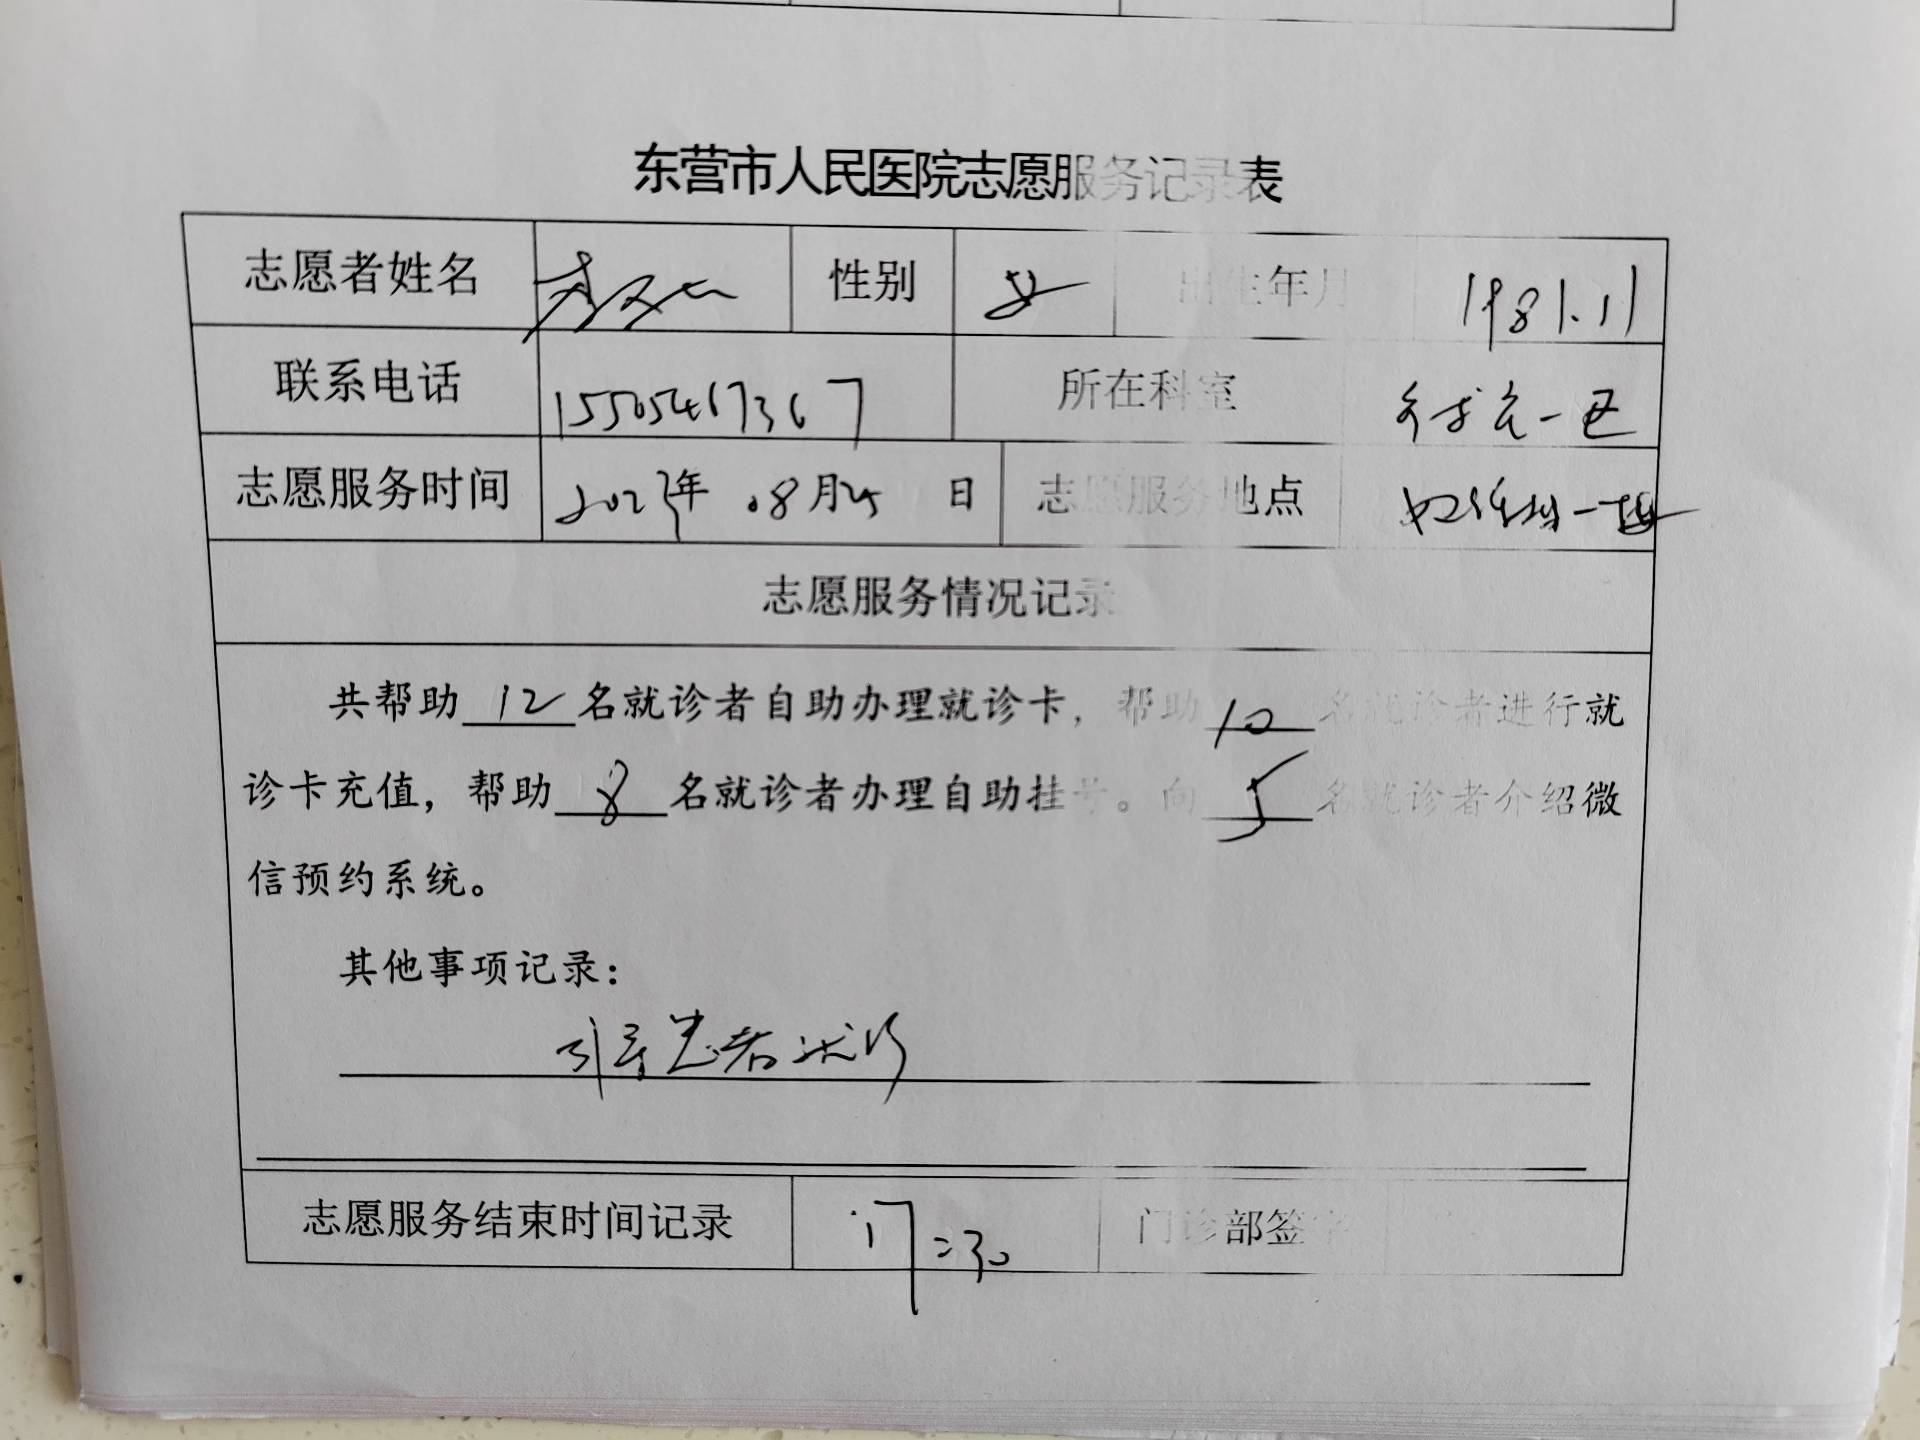 东营市人民医院志愿服务记录表
志愿者姓名 性别 女 出生年月 1981.11
联系电话 15505467367 所在科室
志愿服务时间 2023年 08月25 日 志愿服务地点
志愿服务情况记录
共帮助 12 名就诊者自助办理就诊卡，帮助 10 名就诊者进行就
诊卡充值，帮助 8 名就诊者办理自助挂号。向 5 名就诊者介绍微
信预约系统。
其他事项记录：
引导患者就诊
志愿服务结束时间记录 17:30 门诊部签字